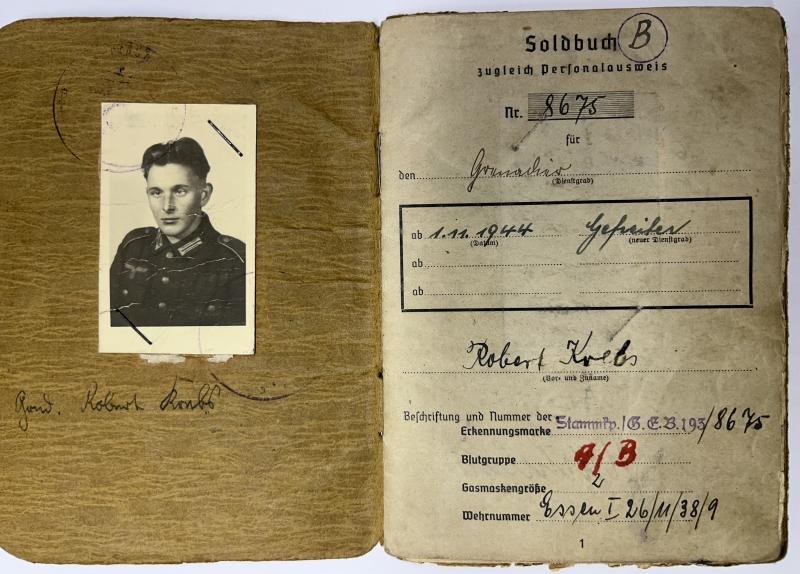 Robert Krebs
Soldbuch B
zugleich Personalausweis
Nr. 8675
für
den Grenadier
(Dienstgrad)
ab 1.11.1944 Gefreiter
(Datum) (neuer Dienstgrad)
ab
ab
Robert Krebs
(Vor- und Zuname)
Beschriftung und Nummer der
Erkennungsmarke Stammkp./G.E.B.193/8675
Blutgruppe A/B
Gasmaskengröße 2
Wehrnummer Essen I 26/11/38/9
1